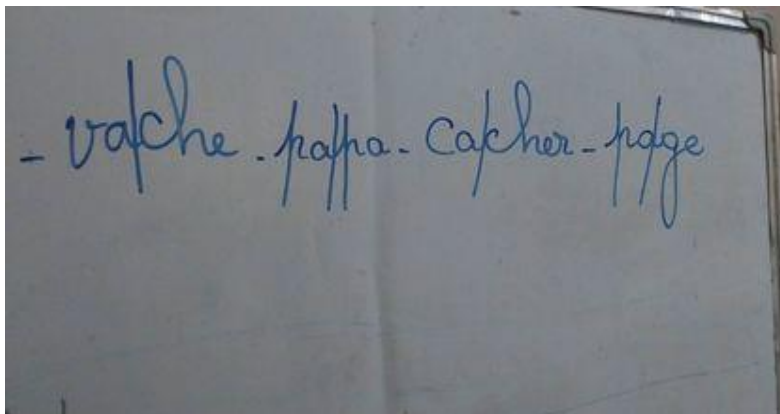 - va/che - pa/pa - Ca/cher - pa/ge